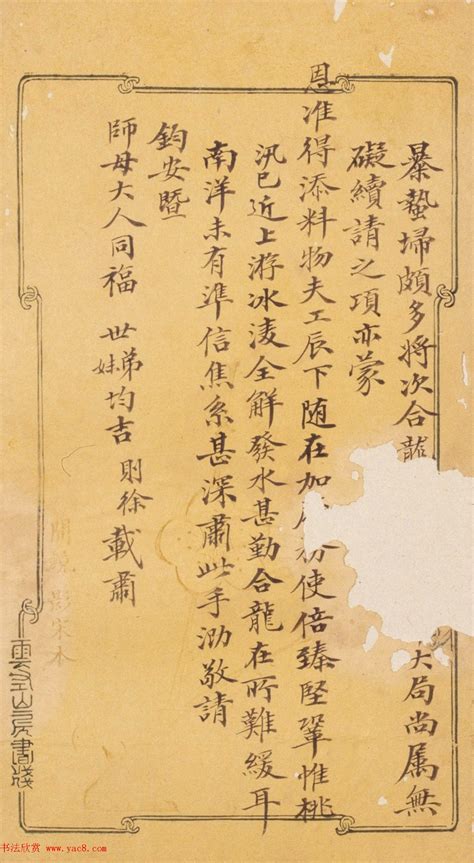 暴蟄埽頗多將次合龍大局尚屬無
礙續請之項亦蒙
恩准得添料物夫工辰下随在加使倍臻堅鞏惟桃
汛已近上游冰淩全解發水甚勤合龍在所難緩耳
南洋未有準信焦系甚深肅此手泐敬請
鈞安暨
師母大人同福 世弟妹均吉 則徐載肅
影宋本
雲左山房書牋
书法欣赏 www.yac8.com